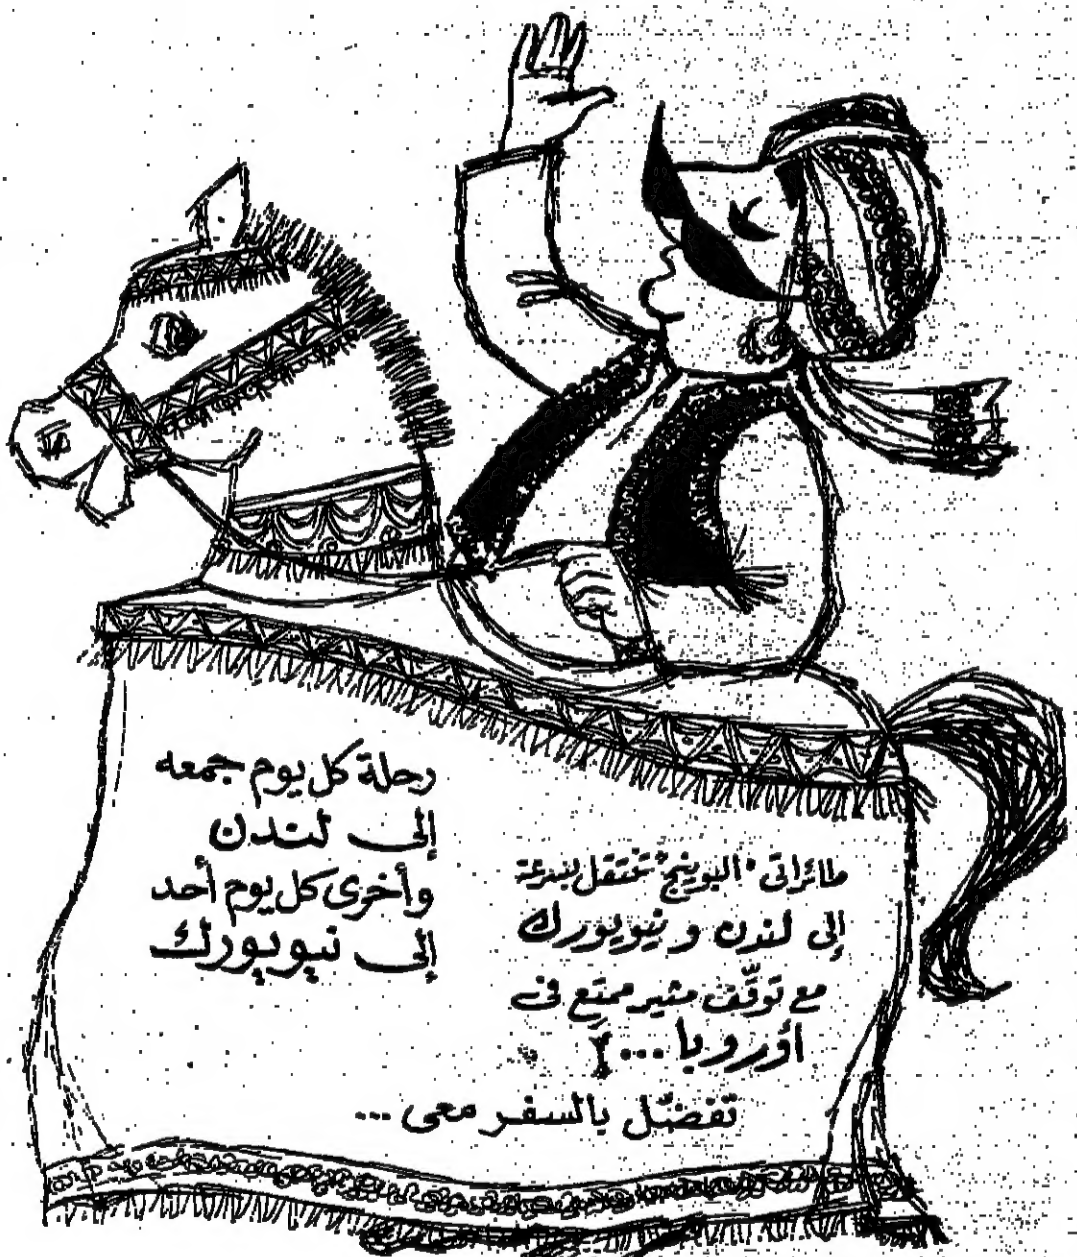 رحلة كل يوم جمعه
إلى لندن
وأخرى كل يوم أحد
إلى نيويورك
طائراتى "البوينج" تنتقل بسرعة
إلى لندن و نيويورك
مع توقّف مثير ممتع فى
أوروبا ...
تفضّل بالسفر معى ...